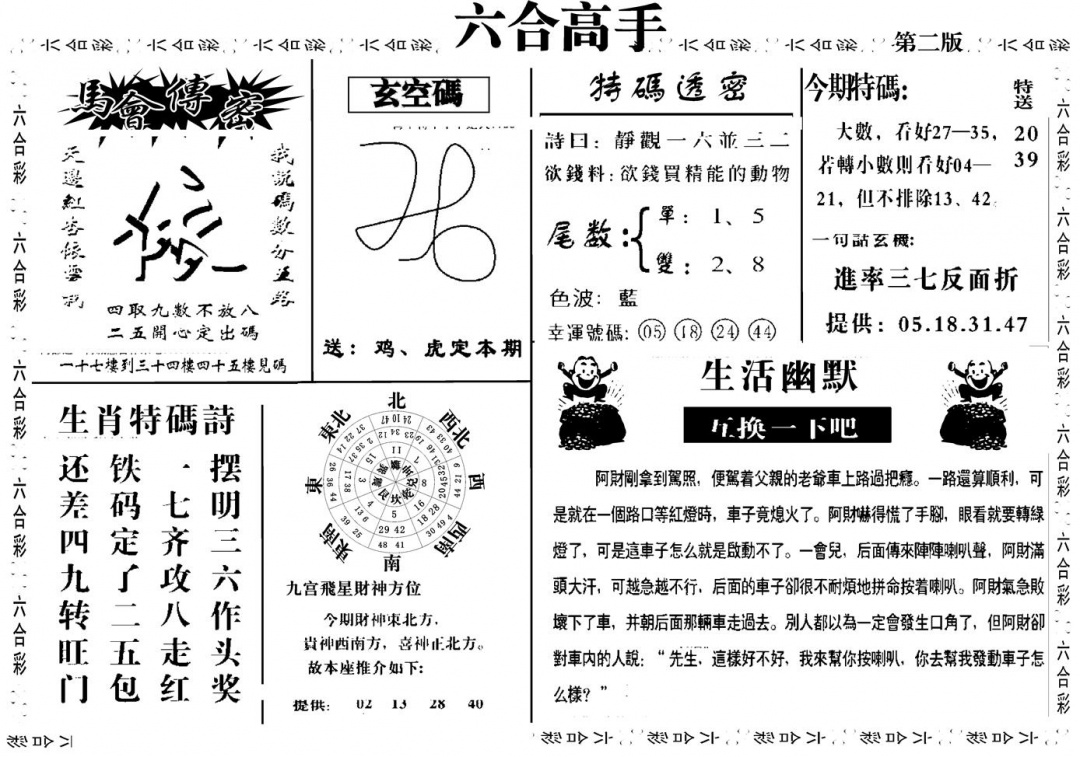 六合高手
第二版
馬會傳密
天邊紅杏依雲栽
我說碼數分五路
四取九數不放八
二五開心定出碼
一十七樓到三十四樓四十五樓見碼
玄空碼
送：鸡、虎定本期
特碼透密
詩曰：靜觀一六並三二
欲錢料：欲錢買精能的動物
尾数：
單：1、5
雙：2、8
色波：藍
幸運號碼：05 18 24 44
今期特碼：
特送
20
39
大數，看好27—35，
若轉小數則看好04—
21，但不排除13、42
一句話玄機：
進率三七反面折
提供：05.18.31.47
生肖特碼詩
摆明三六作头奖
一七齐攻八走红
铁码定了二五包
还差四九转旺门
北
西北
西
西南
南
東南
東
東北
九宫飛星財神方位
今期財神東北方，
貴神西南方，喜神正北方。
故本座推介如下：
提供：02 13 28 40
生活幽默
互换一下吧
阿財剛拿到駕照，便駕着父親的老爺車上路過把癮。一路還算順利，可
是就在一個路口等紅燈時，車子竟熄火了。阿財嚇得慌了手腳，眼看就要轉綠
燈了，可是這車子怎么就是啟動不了。一會兒，后面傳來陣陣喇叭聲，阿財滿
頭大汗，可越急越不行，后面的車子卻很不耐煩地拼命按着喇叭。阿財氣急敗
壞下了車，并朝后面那輛車走過去。別人都以為一定會發生口角了，但阿財卻
對車内的人說：“先生，這樣好不好，我來幫你按喇叭，你去幫我發動車子怎
么樣？”
六合彩